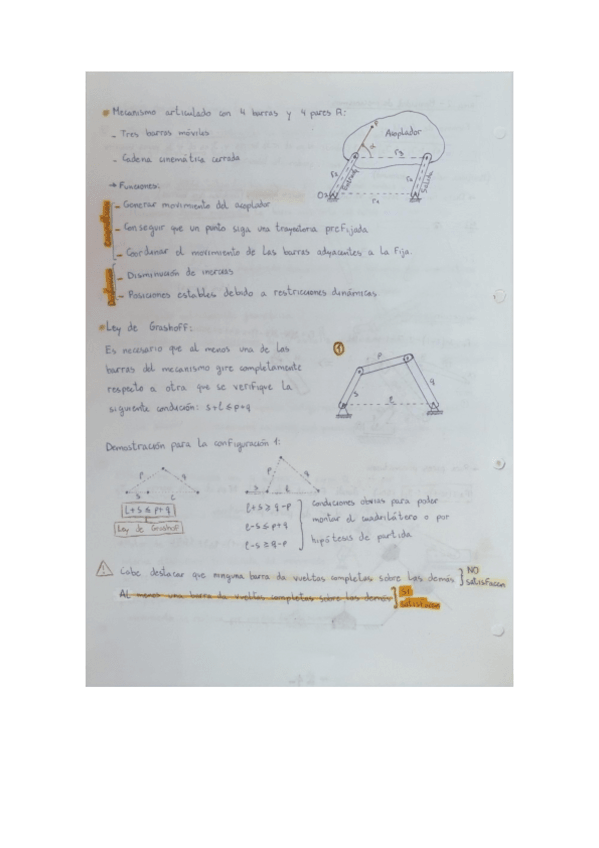 Mecanismo articulado con 4 barras y 4 pares R:
- Tres barras móviles
- Cadena cinemática cerrada
→ Funciones:
- Generar movimiento del acoplador
- Conseguir que un punto siga una trayectoria prefijada
- Coordinar el movimiento de las barras adyacentes a la fija.
- Disminución de inercias
- Posiciones estables debido a restricciones dinámicas
Acoplador
P
α
r3
r2
Entrada
r4
Salida
O2
r1
Ley de Grashoff:
Es necesario que al menos una de las
barras del mecanismo gire completamente
respecto a otra que se verifique la
siguiente condición: s+l ≤ p+q
1
p
s
q
l
Demostración para la configuración 1:
p q
s l
l+s ≤ p+q
Ley de Grashoff
p q
s l
l+s ≥ q-p
l-s ≤ p+q
l-s ≥ q-p
condiciones obvias para poder
montar el cuadrilátero o por
hipótesis de partida
Cabe destacar que ninguna barra da vueltas completas sobre las demás } NO satisfaccen
Al menos una barra da vueltas completas sobre las demás } SI satisfacen